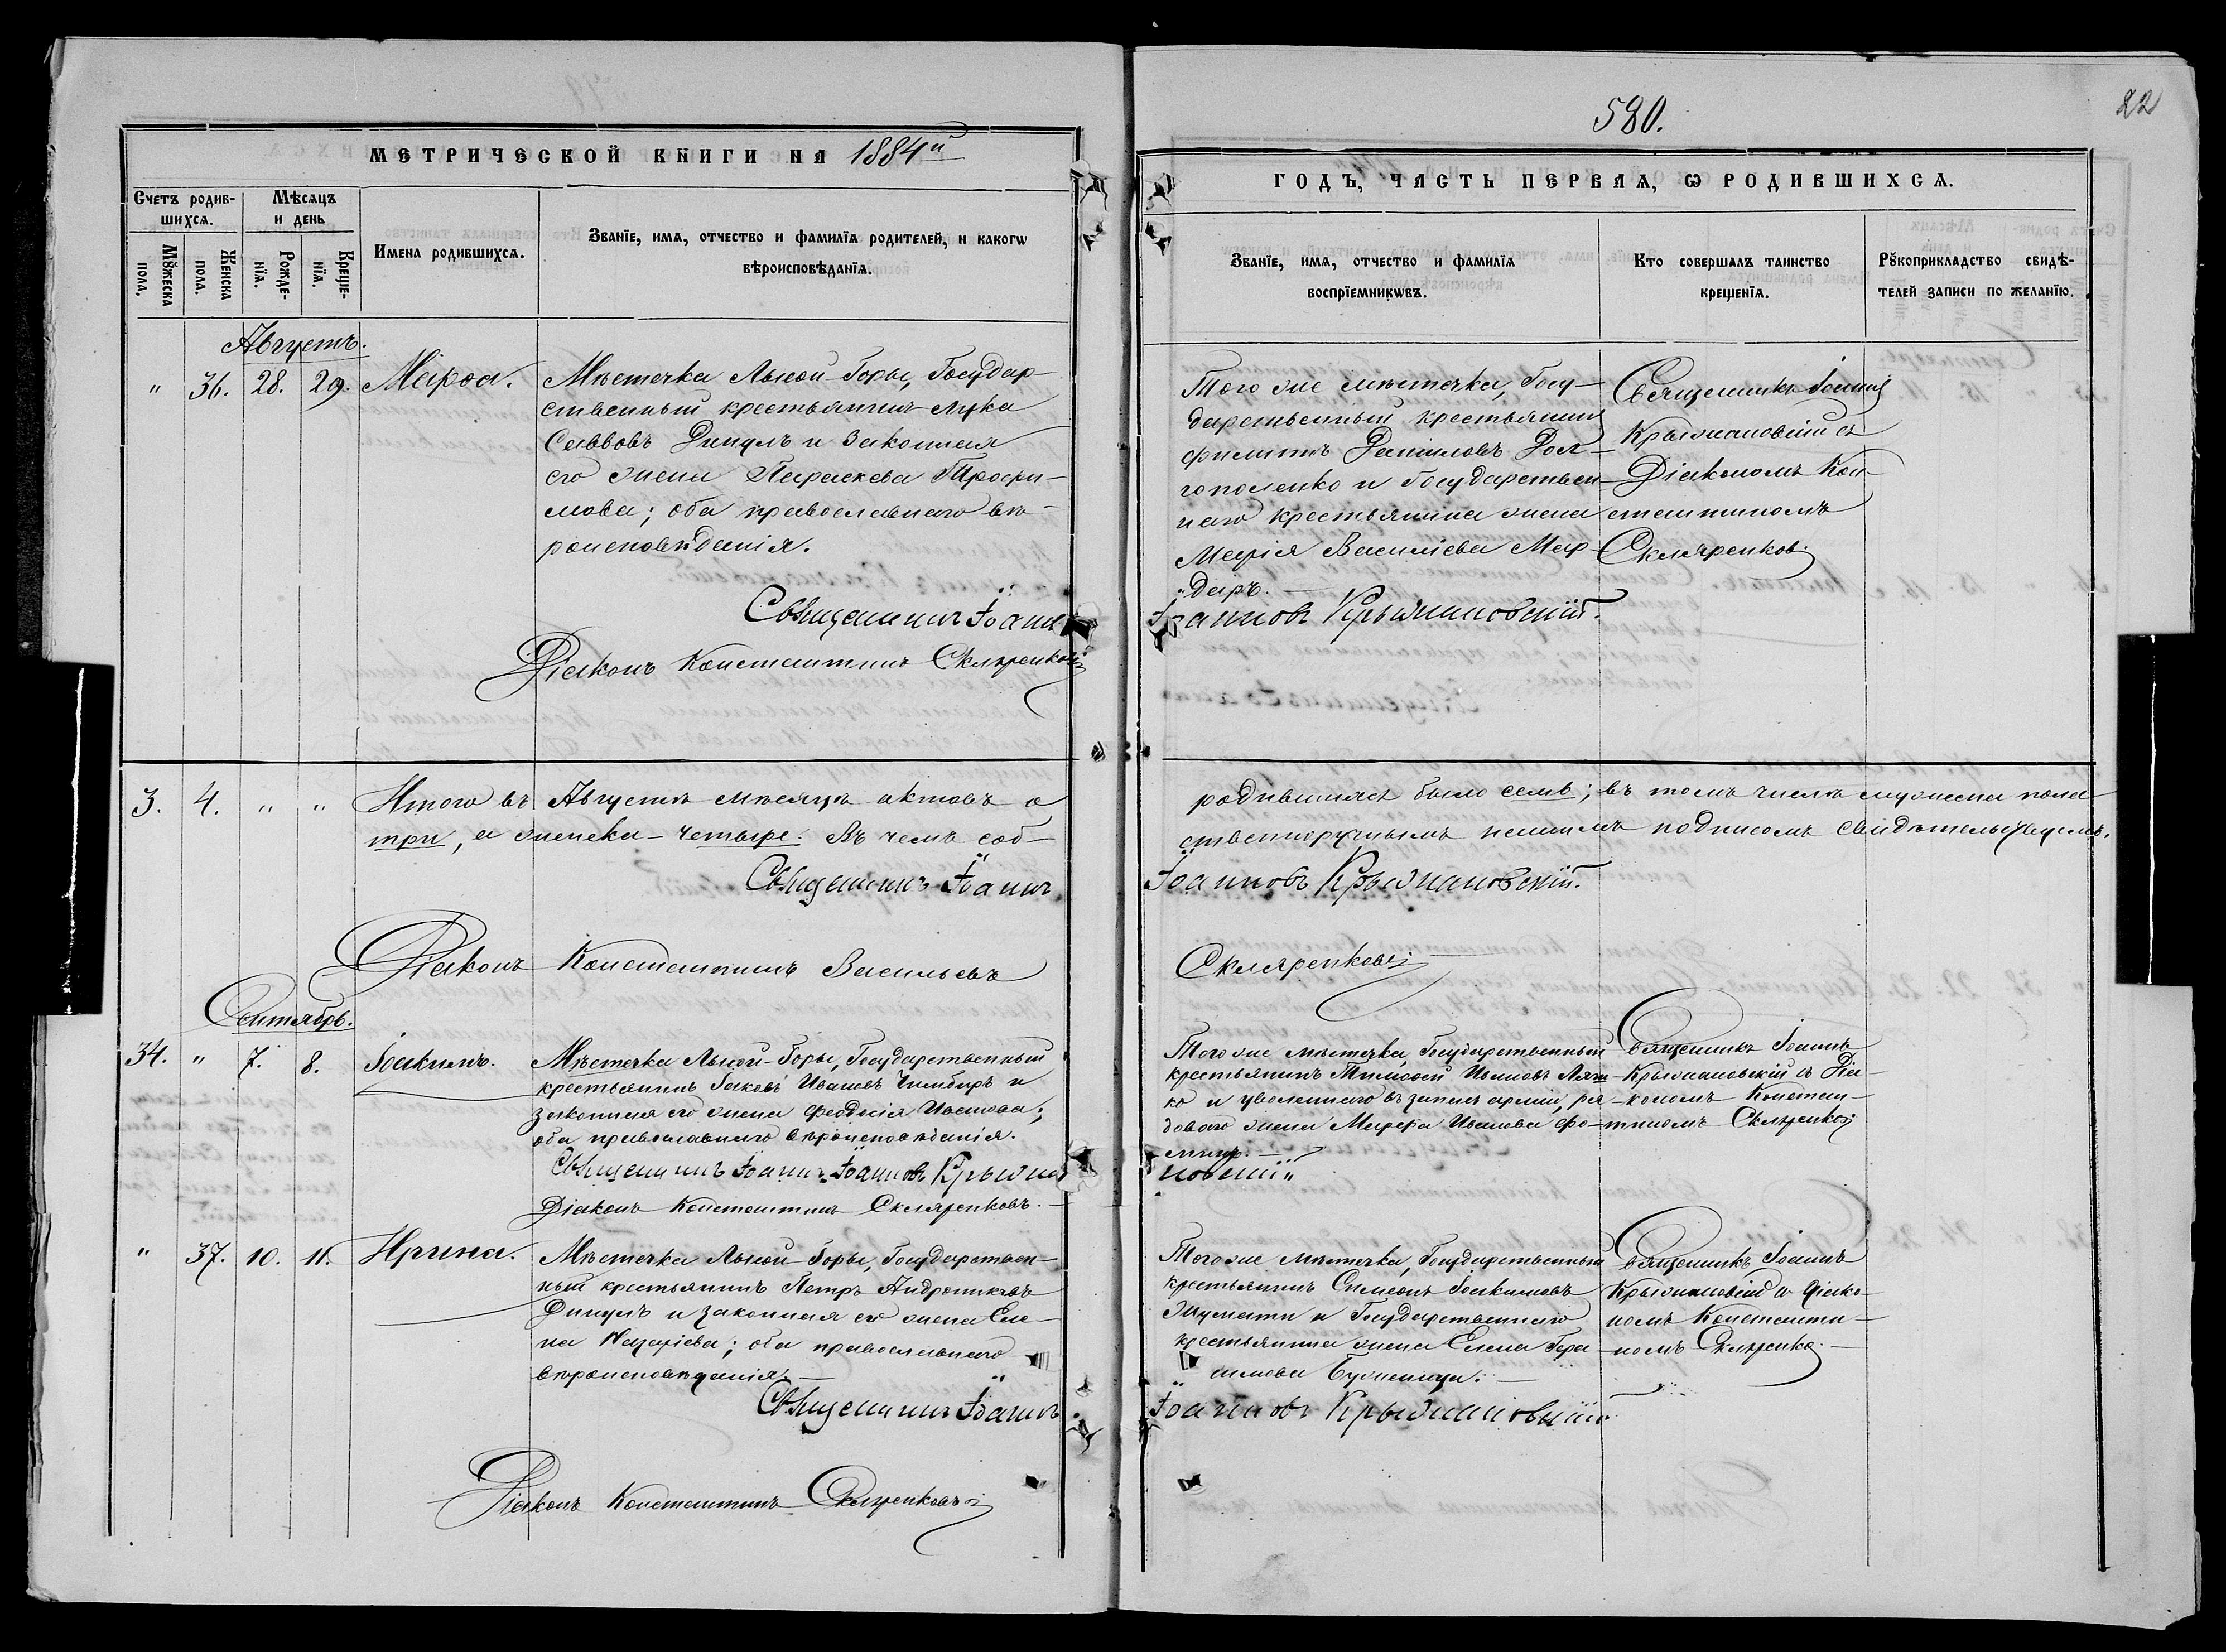 580.
22
МЕТРИЧЕСКОЙ КНИГИ НА 1884й
ГОДЪ, ЧАСТЬ ПЕРВАЯ, Ѡ РОДИВШИХСѦ.
Счетъ родив-
шихсѧ.
Мѣсѧцъ
и день
Мꙋжеска
пола.
Женска
пола.
Рожде-
нїѧ.
Креще-
нїѧ.
Имена родившихсѧ.
Званїе, имѧ, отчество и фамилїѧ родителей, и какогѡ
вѣроисповѣданїѧ.
Званїе, имѧ, отчество и фамилїѧ
воспрїемникѡвъ.
Кто совершалъ таинство
крещенїѧ.
Рꙋкоприкладство свидѣ-
телей записи по желанїю.
Августъ.
" 36. 28. 29. Марѳа.
Мѣстечка Лысой-Горы, Государ-
ственный крестьянинъ Лука
Саввовъ Дикулъ и законная
его жена Параскева Трофи-
мова; оба православнаго вѣ-
роисповѣданія.
Того же мѣстечка, Госу-
дарственный крестьянинъ
Филиппъ Даниловъ Дол-
гополенко и Государствен-
наго крестьянина жена
Марія Василіева Мар-
даръ.
Священникъ Іоаннъ
Крыжановскій съ
Діакономъ Кон-
стантиномъ
Скляренков.
Священникъ Іоаннъ
Іоанновъ Крыжановскій.
Діаконъ Константинъ Скляренковъ
3. 4. " " Итого въ Августѣ мѣсяцѣ актовъ о
родившихся было семь; въ томъ числѣ мужеска пола
три, а женска - четыре. Въ чемъ соб-
ственноручнымъ нашимъ подписомъ свидѣтельствуемъ.
Священникъ Іоаннъ
Іоанновъ Крыжановскій.
Діаконъ Константинъ Васильевъ
Скляренковъ.
Сентябрь.
34. " 7. 8. Іоакимъ.
Мѣстечка Лысой-Горы, Государственный
крестьянинъ Іаковъ Ивановъ Чимбиръ и
законная его жена Феодосія Иванова;
оба православнаго вѣроисповѣданія.
Того же мѣстечка, Государственный
крестьянинъ Тимоѳей Ивановъ
и уволеннаго въ запасъ арміи, ря-
доваго жена Марѳа Иванова
Священникъ Іоаннъ
Крыжановскій съ Діа-
кономъ Констан-
тиномъ Скляренков
Священникъ Іоаннъ Іоанновъ Крыжа
новскій
Діаконъ Константинъ Скляренковъ.
" 37. 10. 11. Ирина.
Мѣстечка Лысой-Горы, Государствен-
ный крестьянинъ Петръ Андрониковъ
Дикулъ и законная его жена Еле-
на Назаріева; оба православнаго
вѣроисповѣданія.
Того же мѣстечка, Государственный
крестьянинъ Симеонъ Іоакимовъ
и Государственнаго
крестьянина жена Елена Гера-
симова
Священникъ Іоаннъ
Крыжановскій съ Діако-
номъ Константи-
номъ Скляренко.
Священникъ Іоаннъ
Іоанновъ Крыжановскій.
Діаконъ Константинъ Скляренковъ